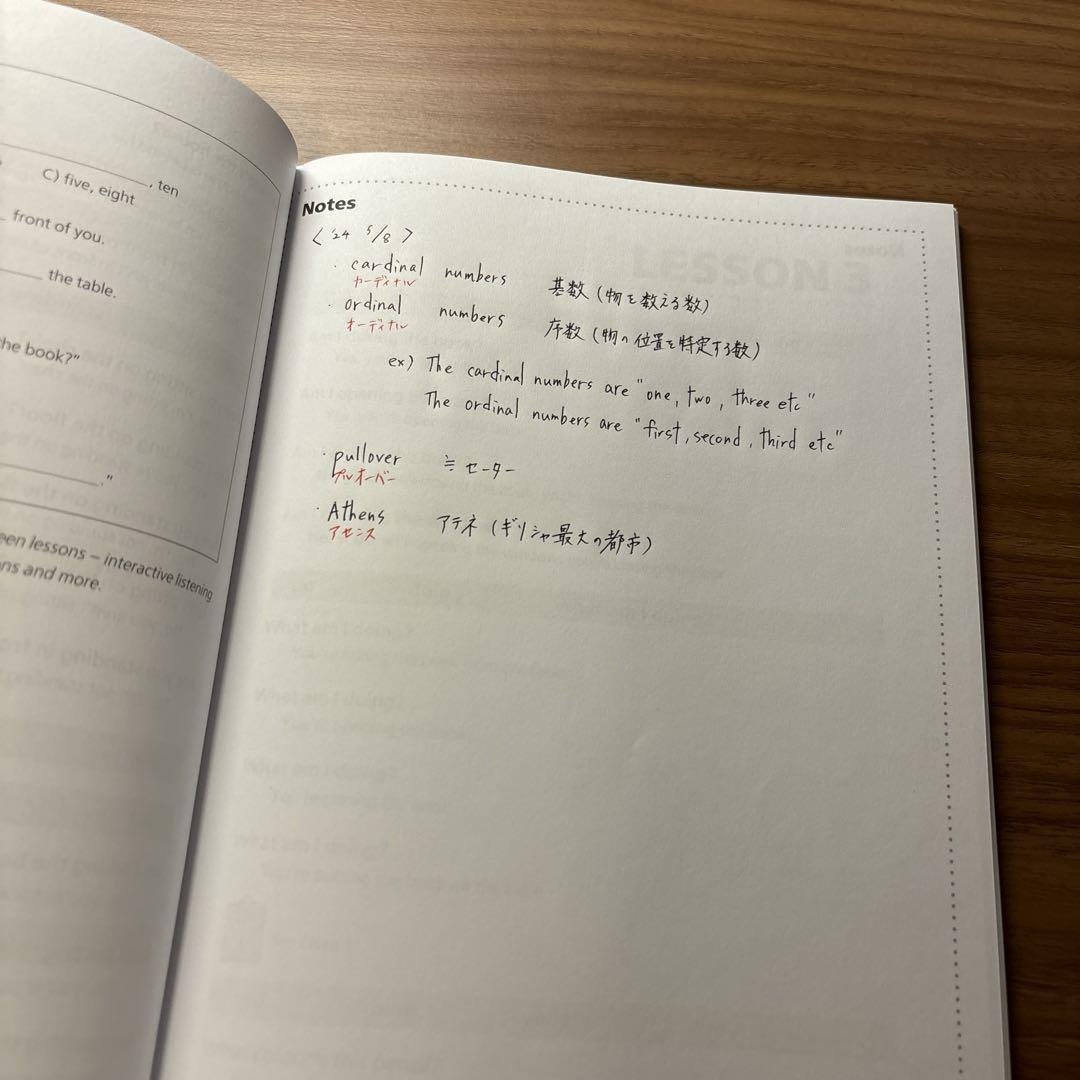 , ten
C) five, eight
front of you.
the table.
he book?"
."
een lessons – interactive listening
ns and more.
Notes
〈 '24 5/8 〉
· cardinal numbers 基数 (物を数える数)
カーディナル
· ordinal numbers 序数 (物の位置を特定する数)
オーディナル
ex) The cardinal numbers are "one, two, three etc"
The ordinal numbers are "first, second, third etc"
· pullover ≒ セーター
プルオーバー
· Athens アテネ (ギリシャ最大の都市)
アセンス